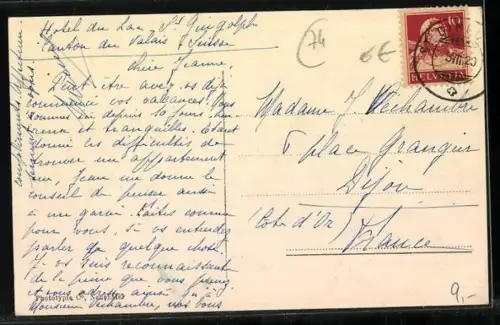 Hotel du Lac St Gingolph
Canton du Valais Suisse
Chère Jeanne,
Peut être avez vs déjà
commencé vos vacances. Nous
sommes ici depuis 10 jours, heu
reux et tranquilles. Etant
donné les difficultés de
trouver un appartement
Jean me donne le
conseil de penser aussi
à un garni. Faites comme
pour vous, si vs entendez
parler de quelque chose.
Je vs suis reconnaissant
de la peine que vous prenez
et vous adresse ainsi qu'à
Monsieur Déchambre, nos bons
compliments affectueux
74
6€
10
HELVETIA
Madame J. Déchambre
6 place Grangier
Dijon
Côte d'Or
France
Phototypie Co, Neuchâtel
9,-